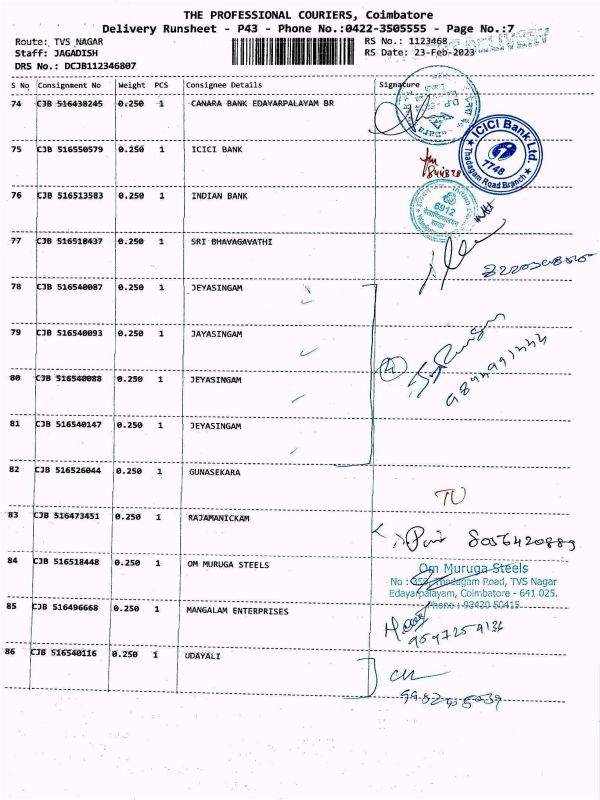 THE PROFESSIONAL COURIERS, Coimbatore
Delivery Runsheet - P43 - Phone No.:0422-3505555 - Page No.:7
Route: TVS NAGAR
RS No.: 1123468
Staff: JAGADISH
RS Date: 23-Feb-2023
DRS No.: DCJB112346807
S No Consignment No Weight PCS Consignee Details Signature
74 CJB 516438245 0.250 1 CANARA BANK EDAYARPALAYAM BR
75 CJB 516550579 0.250 1 ICICI BANK
ICICI Bank Ltd.
7748
Thadagam Road Branch
76 CJB 516513583 0.250 1 INDIAN BANK
6912
77 CJB 516518437 0.250 1 SRI BHAVAGAVATHI
78 CJB 516540087 0.250 1 JEYASINGAM
79 CJB 516540093 0.250 1 JAYASINGAM
4
80 CJB 516540088 0.250 1 JEYASINGAM
81 CJB 516540147 0.250 1 JEYASINGAM
82 CJB 516526044 0.250 1 GUNASEKARA
83 CJB 516473451 0.250 1 RAJAMANICKAM
8056420889
84 CJB 516518448 0.250 1 OM MURUGA STEELS
Om Muruga Steels
No : 353, Thadagam Road, TVS Nagar
Edayarpalayam, Coimbatore - 641 025.
Phone : 98420 50415
85 CJB 516496668 0.250 1 MANGALAM ENTERPRISES
9597259136
86 CJB 516540116 0.250 1 UDAYALI